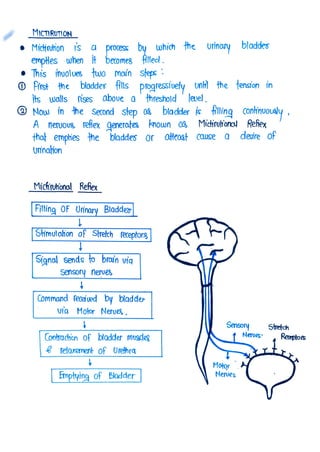 MICTIRUTION
Mictirution is a process by which the urinary bladder
empties when it becomes filled.
This involues two main steps :
① First the bladder fills progressively until the tension in
its walls rises above a threshold level.
② Now in the second step as bladder is filling continuously,
A nervous reflex generates known as Mictirutional Reflex
that empties the bladder or atleast cause a desire of
urination
Mictirutional Reflex
Filling OF Urinary Bladder
Stimulation of Stretch receptors
Signal sends to brain via
sensory nerves
Command received by bladder
via Motor Nerves.
Contraction of bladder muscles
& relaxament of Urethra
Emptying of Bladder
Sensory Nerves
Stretch Receptors
Motor Nerves